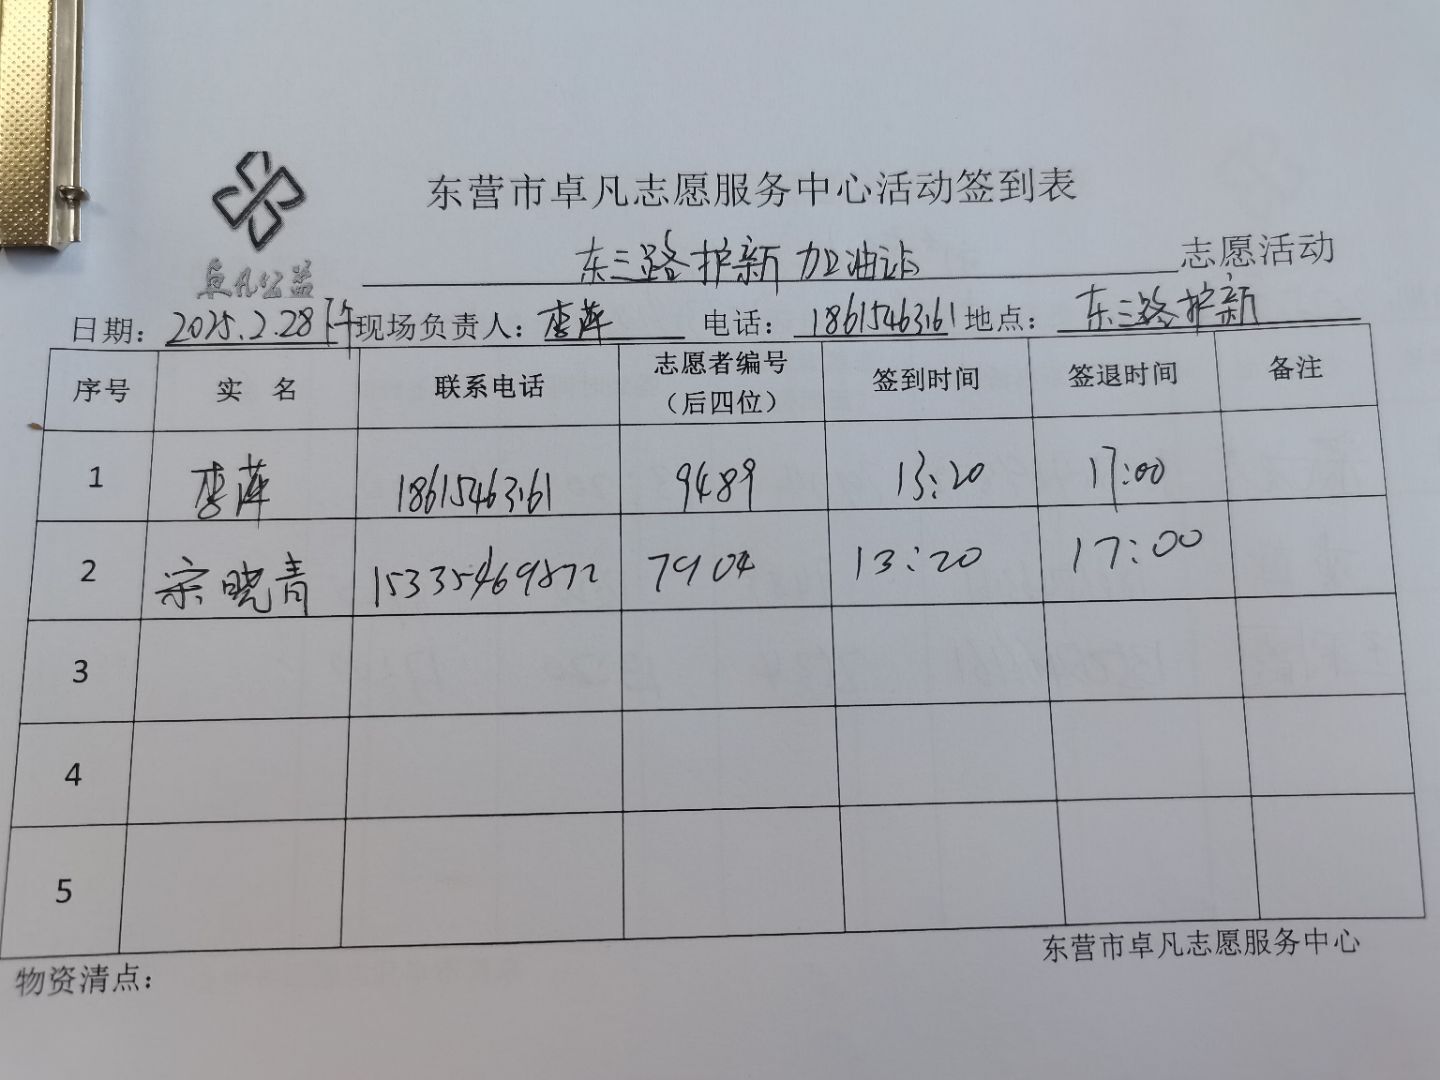 东营市卓凡志愿服务中心活动签到表
卓凡公益
东三路护新加油站 志愿活动
日期: 2025.2.28下午 现场负责人: 李萍 电话: 18615463161 地点: 东三路护新
序号 实 名 联系电话 志愿者编号（后四位） 签到时间 签退时间 备注
1 李萍 18615463161 9489 13:20 17:00
2 宗晓青 15335469872 7904 13:20 17:00
3
4
5
东营市卓凡志愿服务中心
物资清点: